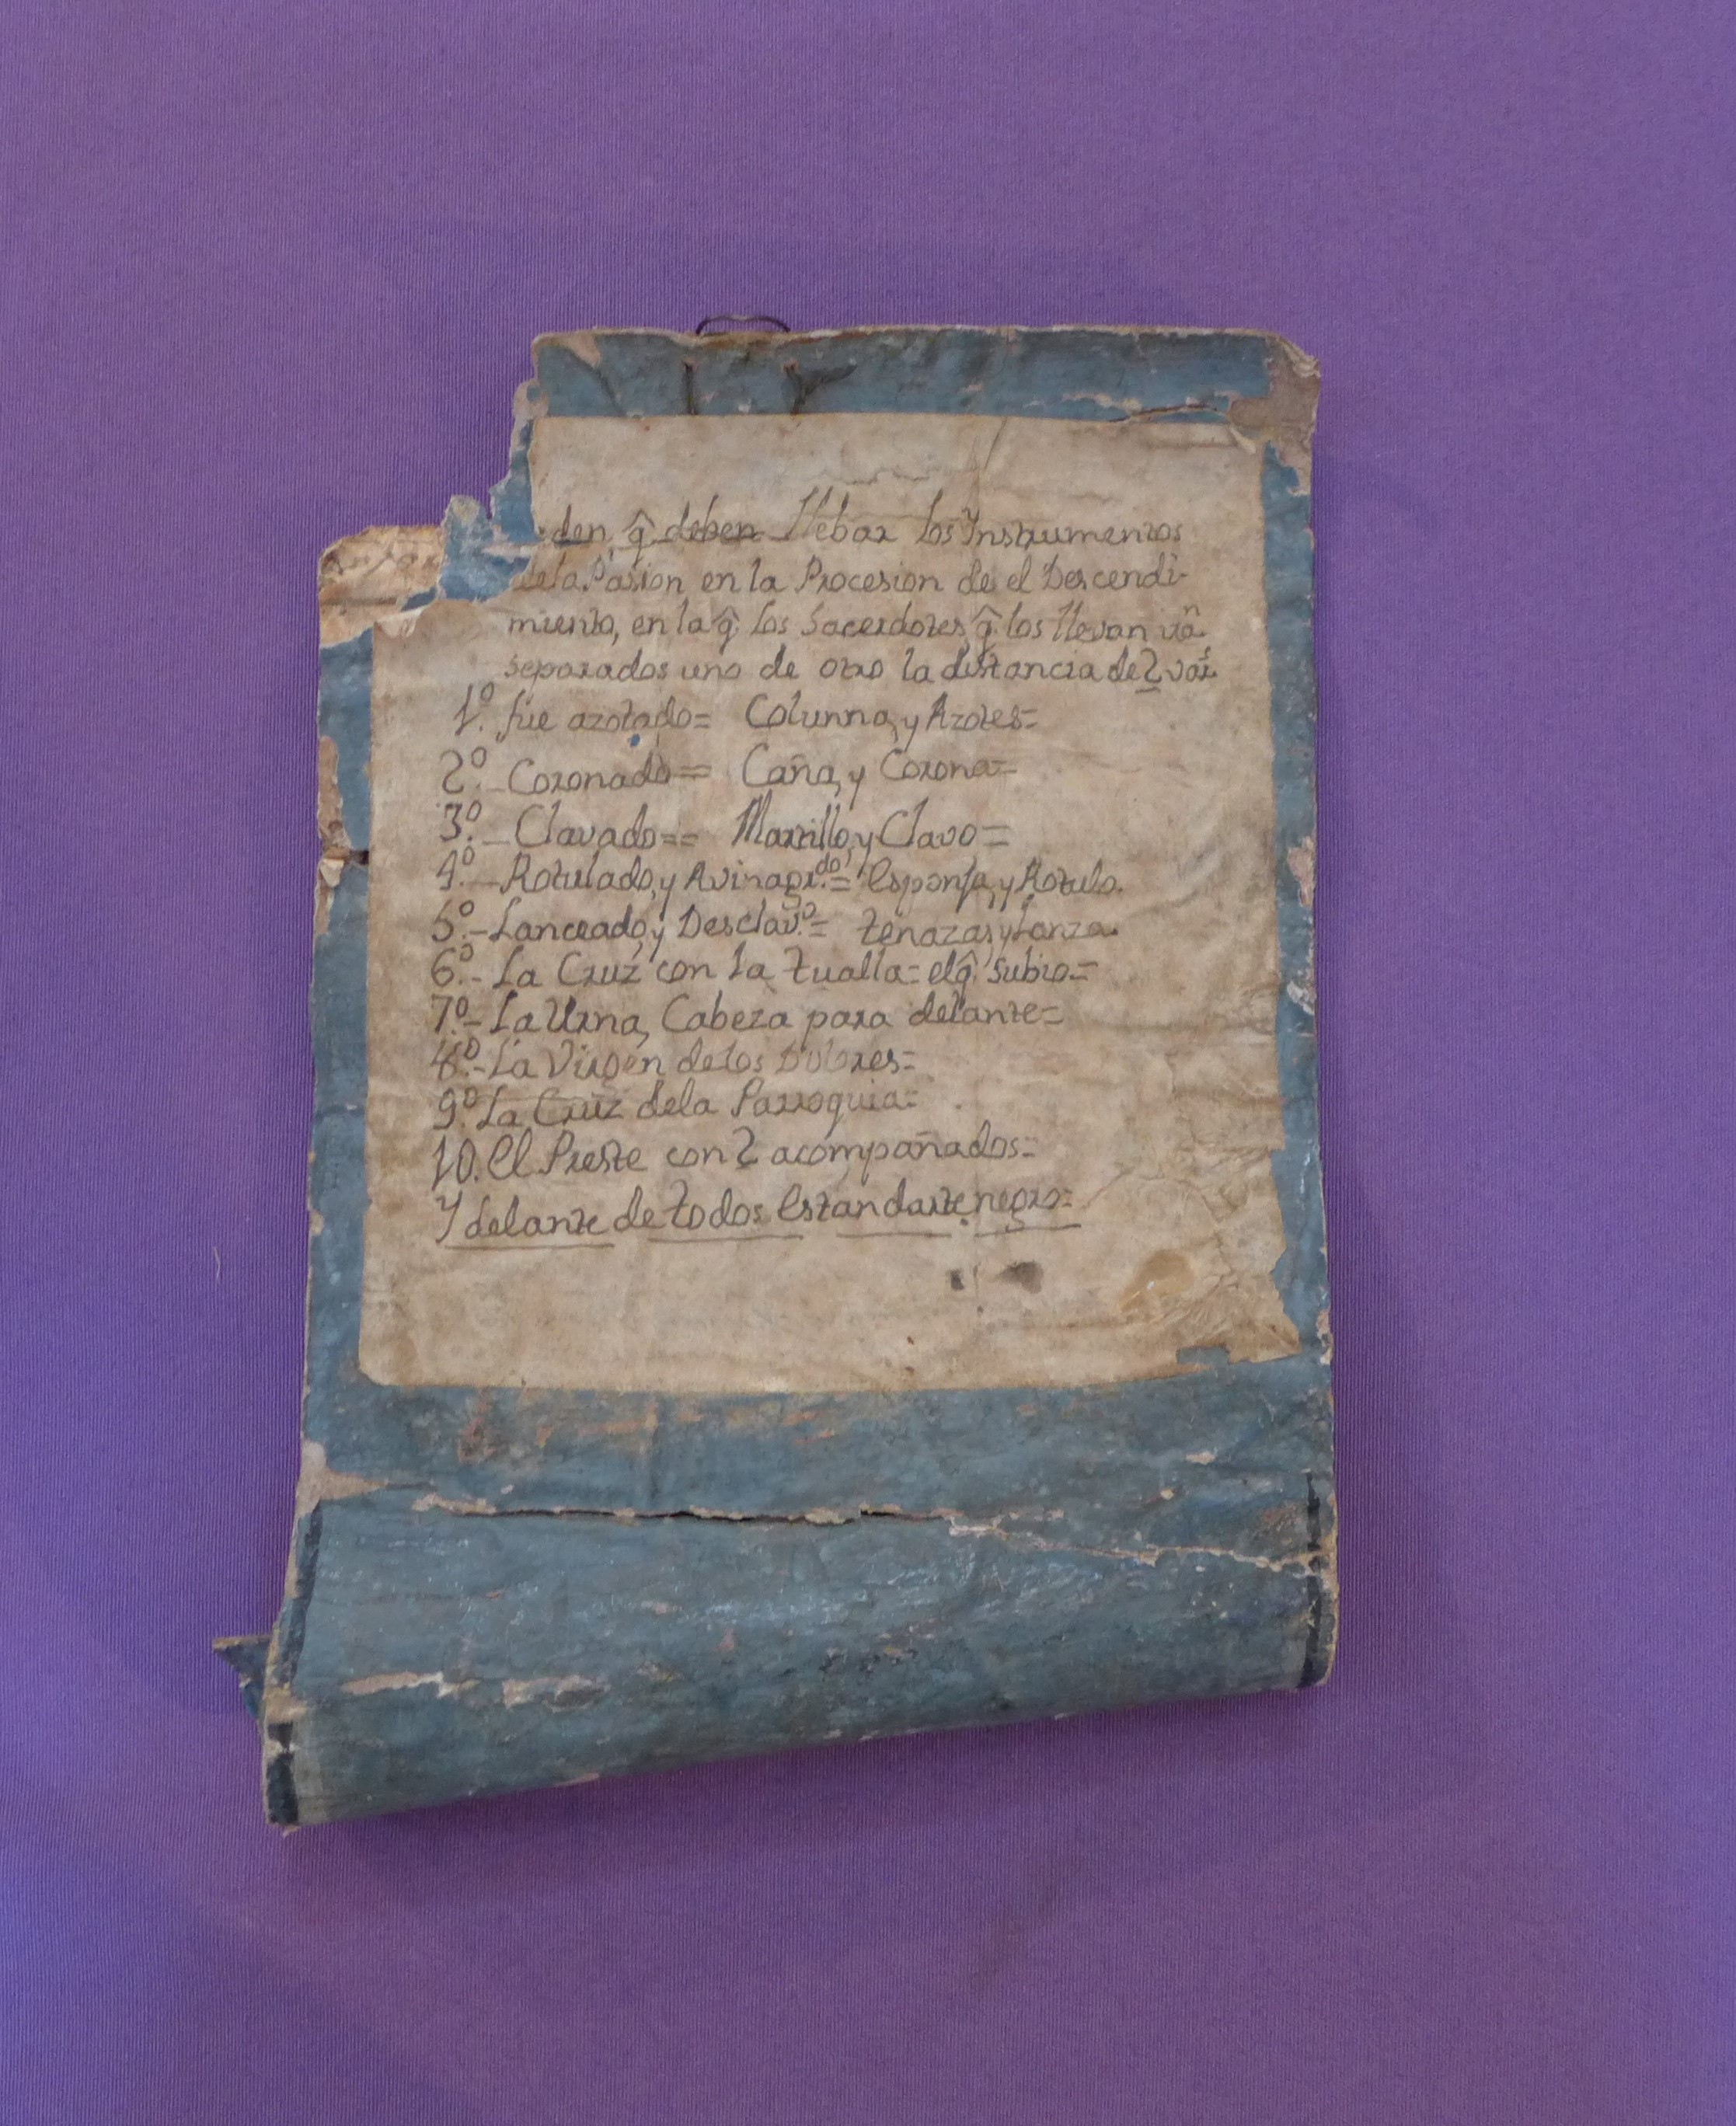 den, q̂ deben llebar los Instrumentos
dela Pasion en la Procesion de el Descendi-
miento, en la q̂ los Sacerdotes, q̂ los llevan irãⁿ
separados uno de otro la distancia de 2 varˢ.
1º. fue azotado= Colunna, y Azotes=
2º.- Coronado= Caña, y Corona=
3º.- Clavado== Martillo, y Clavo=
4º.- Rotulado, y Avinagr.do= Esponja, y Rotulo.
5º.- Lanceado, y Desclav.º= tenazas, y Lanza.
6º.- La Cruz con la tualla= el q̂ subio=
7º.- La Urna, Cabeza para delante=
8º.- La Virgen delos Dolores=
9º. La Cruz dela Parroquia=
10. El Preste con 2 acompañados=
Y delante de todos Estandarte negro=